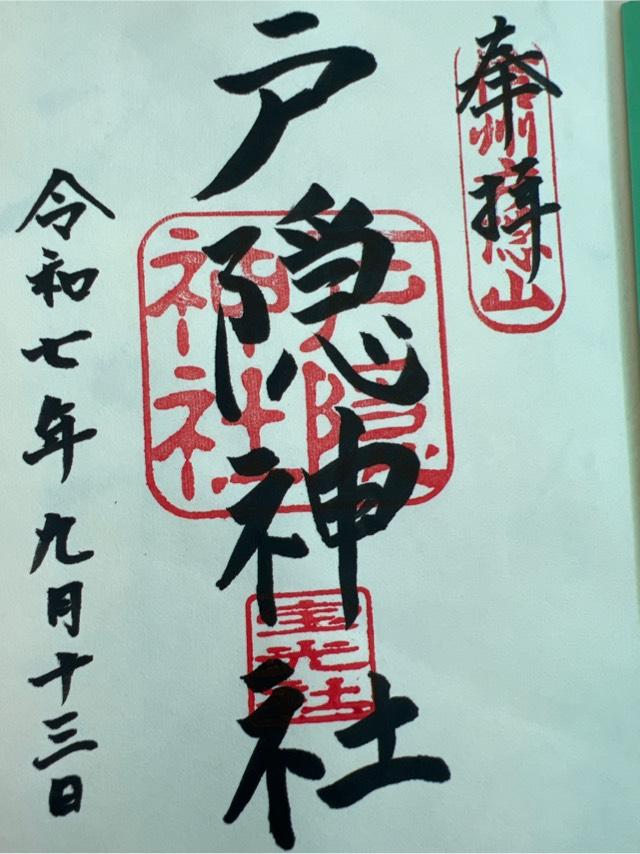 奉拝
信州戸隠山
戸隠神社
戸隠神社
宝光社
令和七年九月十三日